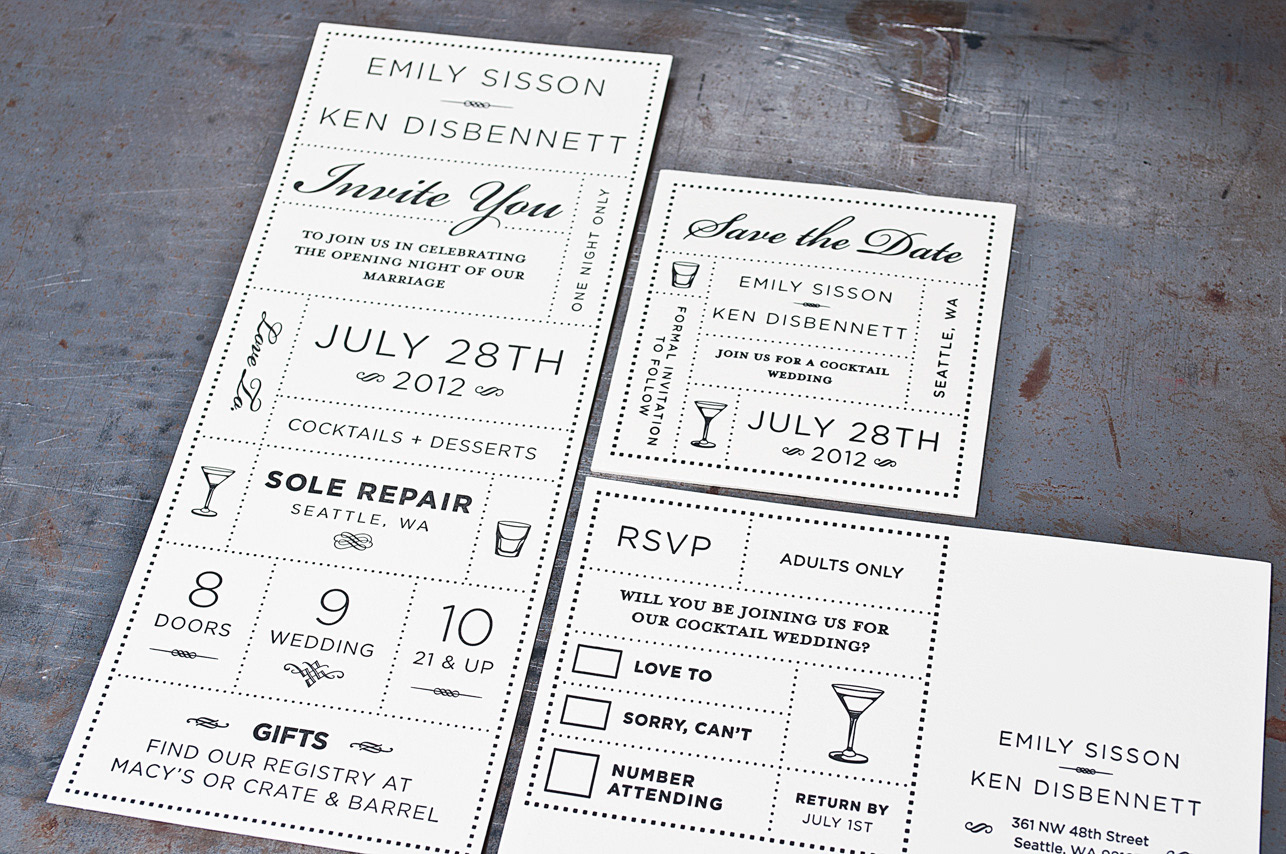 EMILY SISSON
KEN DISBENNETT
Invite You
ONE NIGHT ONLY
TO JOIN US IN CELEBRATING
THE OPENING NIGHT OF OUR
MARRIAGE
Love To,
JULY 28TH
2012
COCKTAILS + DESSERTS
SOLE REPAIR
SEATTLE, WA
8
DOORS
9
WEDDING
10
21 & UP
GIFTS
FIND OUR REGISTRY AT
MACY'S OR CRATE & BARREL
Save the Date
EMILY SISSON
KEN DISBENNETT
SEATTLE, WA
FORMAL INVITATION
TO FOLLOW
JOIN US FOR A COCKTAIL
WEDDING
JULY 28TH
2012
RSVP
ADULTS ONLY
WILL YOU BE JOINING US FOR
OUR COCKTAIL WEDDING?
LOVE TO
SORRY, CAN'T
NUMBER
ATTENDING
RETURN BY
JULY 1ST
EMILY SISSON
KEN DISBENNETT
361 NW 48th Street
Seattle, WA